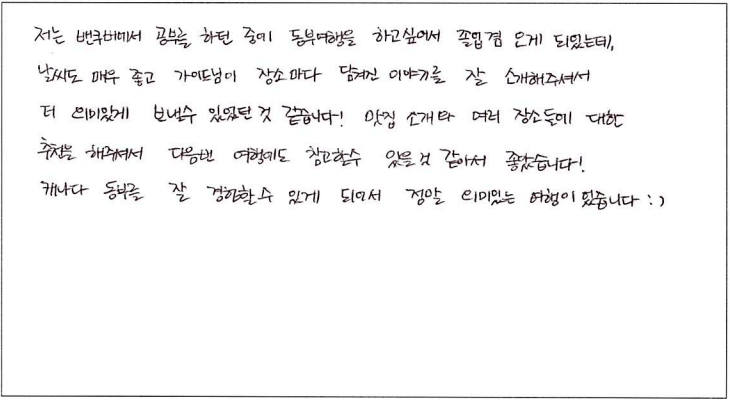 저는 밴쿠버에서 공부를 하던 중에 동부여행을 하고싶어서 졸업겸 오게 되었는데,
날씨도 매우 좋고 가이드님이 장소마다 담겨진 이야기를 잘 소개해주셔서
더 의미있게 보낼수 있었던 것 같습니다! 맛집 소개와 여러 장소들에 대한
추천을 해주셔서 다음번 여행에도 참고할수 있을것 같아서 좋았습니다!
캐나다 동부를 잘 경험할수 있게 되어서 정말 의미있는 여행이었습니다 :)